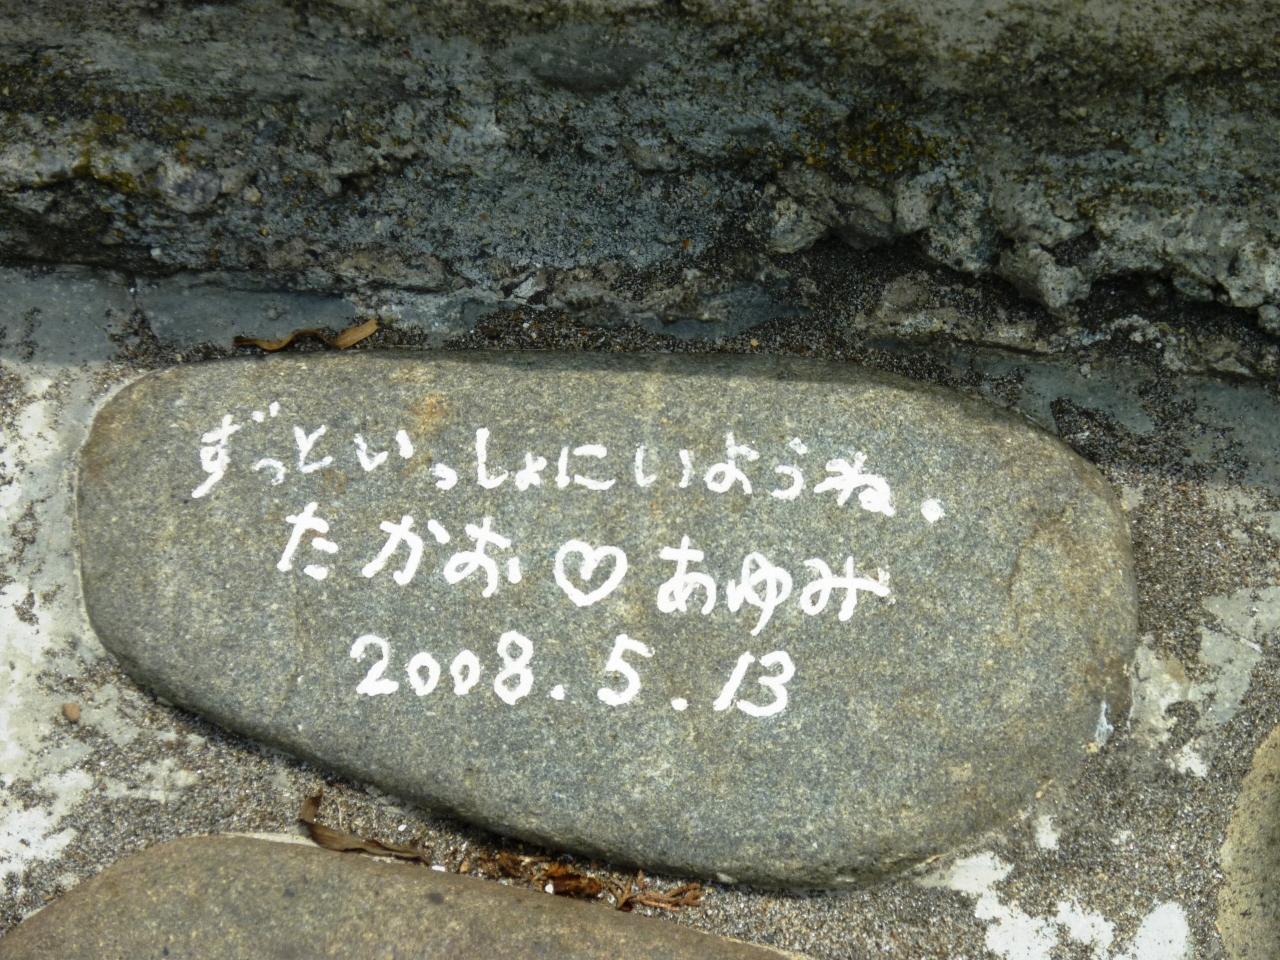 ずっといっしょにいようね。
たかお♡あゆみ
2008.5.13